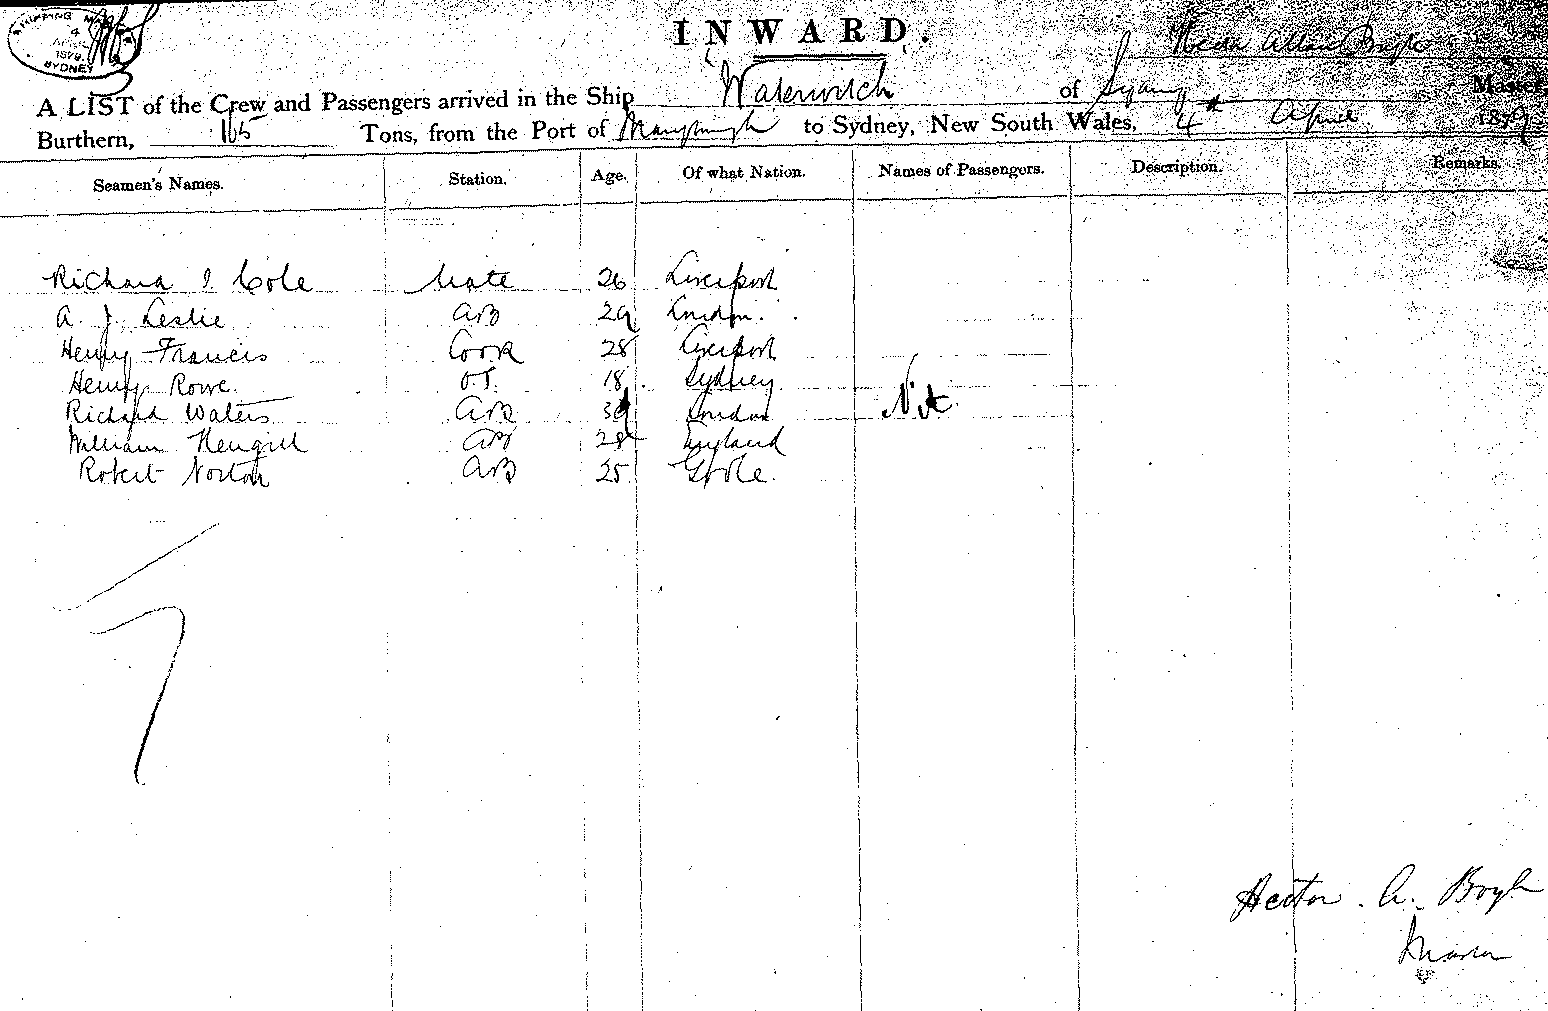 SHIPPING MA
4
APRIL
1879
SYDNEY
INWARD.
Allan Boyle
A LIST of the Crew and Passengers arrived in the Ship Waterwitch of Sydney Master,
Burthern, 165 Tons, from the Port of Maryborough to Sydney, New South Wales, 4th April 1879
Seamen's Names. Station. Age. Of what Nation. Names of Passengers. Description. Remarks.
Richard J. Cole Mate 26 Liverpool
A. J. Leslie AB 29 London.
Henry Francis Cook 28 Liverpool
Henry Rowe. O.S. 18 Sydney
Richard Waters AB London
William AB 28 England
Robert Norton AB 25 Goole.
Nil
Hector. A. Boyle
Master